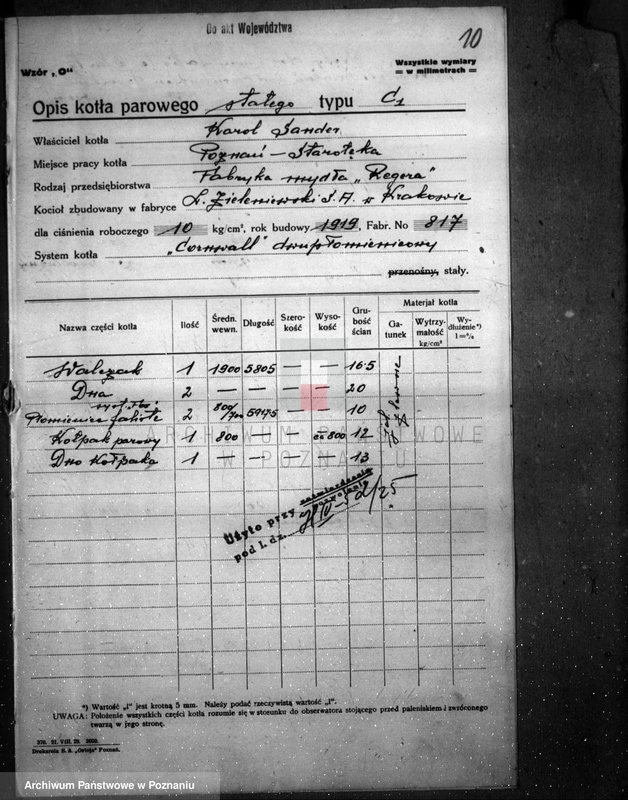 Do akt Województwa
10
Wzór „O"
Wszystkie wymiary
w milimetrach
Opis kotła parowego stałego typu C1
Właściciel kotła Karol Sander
Miejsce pracy kotła Poznań - Starołęka
Rodzaj przedsiębiorstwa Fabryka mydła „Regera"
Kocioł zbudowany w fabryce L. Zieleniewski S.A. w Krakowie
dla ciśnienia roboczego 10 kg/cm², rok budowy 1919, Fabr. No 817
System kotła „Cornwall" dwupłomienicowy
przenośny, stały.
Nazwa części kotła Ilość Średn. wewn. Długość Szerokość Wysokość Grubość ścian Materjał kotła
Gatunek Wytrzymałość kg/cm² Wydłużenie*) l=%
Walczak 1 1900 5805 — — 16.5
Dna 2 — — — — 20
Płomienice faliste 2 800/700 5947.5 — — 10
Kołpak parowy 1 800 — — ca 800 12
Dno Kołpaka 1 — — — — 13
ARCHIWUM PAŃSTWOWE
W POZNANIU
Użyto przy
pod l. dz.
*) Wartość „l" jest krotną 5 mm. Należy podać rzeczywistą wartość „l".
UWAGA: Położenie wszystkich części kotła rozumie się w stosunku do obserwatora stojącego przed paleniskiem i zwróconego
twarzą w jego stronę.
378. 21. VIII. 29. 2000.
Drukarnia S. A. „Ostoja" Poznań.
Archiwum Państwowe w Poznaniu